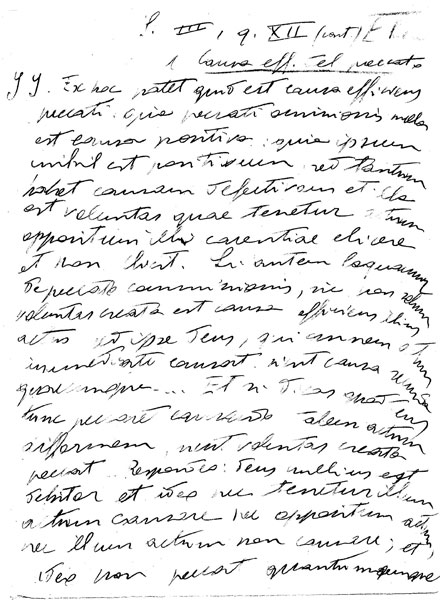 S. III, q. XII (cont.)
1 Causa eff. del peccato
yy. Ex hoc patet quid est causa efficiens
peccati quia peccati omissionis nulla
est causa positiva quia ipsum
nihil est positivum, sed tantum
habet causam defectivam et illa
est voluntas quae tenetur actum
oppositum illi carentiae elicere
et non elicit. Si autem loquamur
de peccato commissionis, sic non solum
voluntas creata est causa efficiens illius
actus sed ipse Deus, qui omnem actum
immediate causat sicut causa secunda
quaecumque... Et si dicas quod Deus
tunc peccaret causando talem actum
difformem, sicut voluntas creata
peccat. Respondeo: Deus nullius est
debitor et ideo nec tenetur illum
actum causare nec oppositum actum,
nec illum actum non causare; et
ideo non peccat quantumcumque